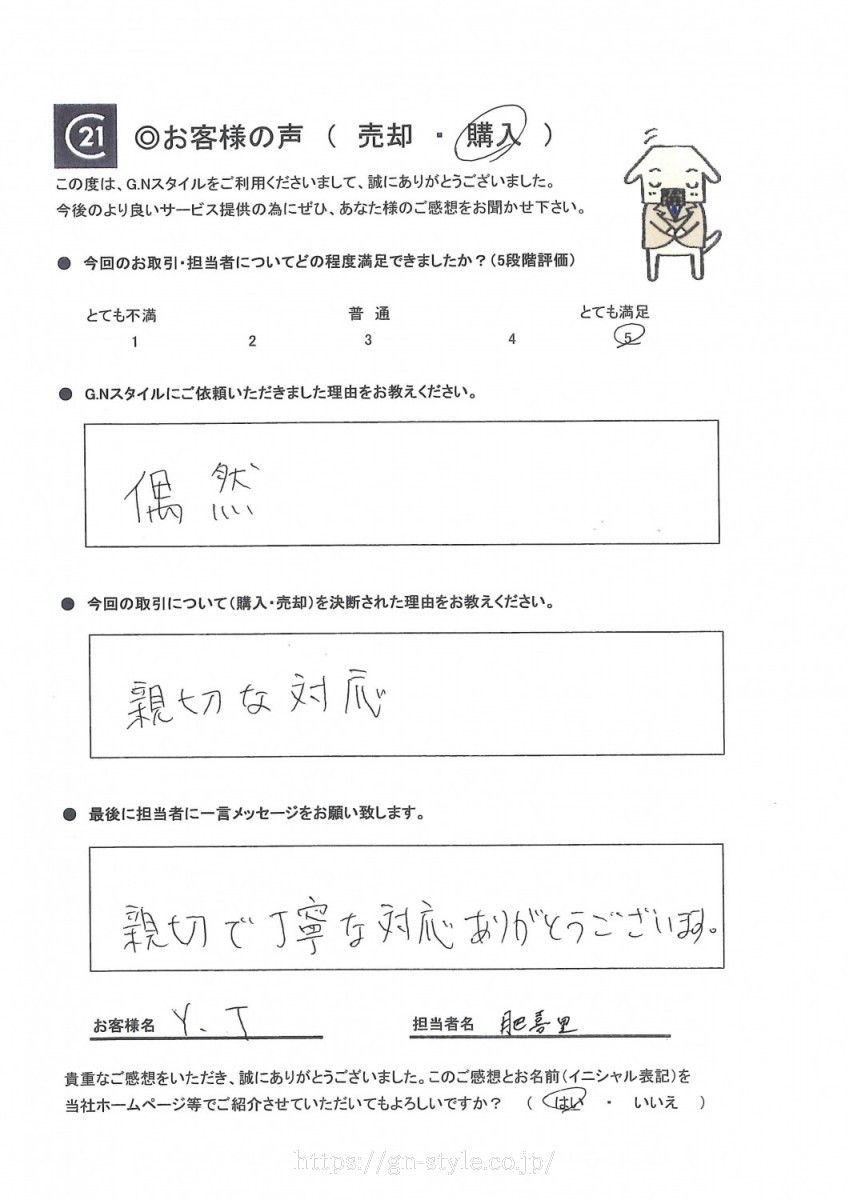 C21 ◎お客様の声 ( 売却 ・ 購入 )
この度は、G.Nスタイルをご利用くださいまして、誠にありがとうございました。
今後のより良いサービス提供の為にぜひ、あなた様のご感想をお聞かせ下さい。
● 今回のお取引・担当者についてどの程度満足できましたか？(5段階評価)
とても不満 普 通 とても満足
1 2 3 4 5
● G.Nスタイルにご依頼いただきました理由をお教えください。
偶然
● 今回の取引について(購入・売却)を決断された理由をお教えください。
親切な対応
● 最後に担当者に一言メッセージをお願い致します。
親切で丁寧な対応ありがとうございます。
お客様名 Y. T 担当者名 肥喜里
貴重なご感想をいただき、誠にありがとうございました。このご感想とお名前(イニシャル表記)を
当社ホームページ等でご紹介させていただいてもよろしいですか？ ( はい ・ いいえ )
https://gn-style.co.jp/